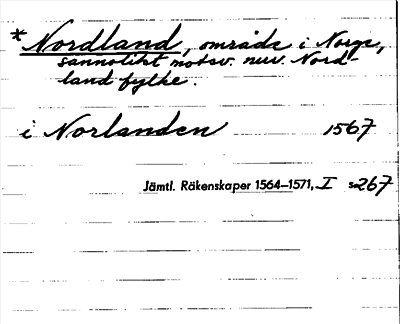 *Nordland, område i Norge,
sannolikt motsv. nuv. Nord-
land fylke.
i Norlanden 1567
Jämtl. Räkenskaper 1564–1571, I s. 267